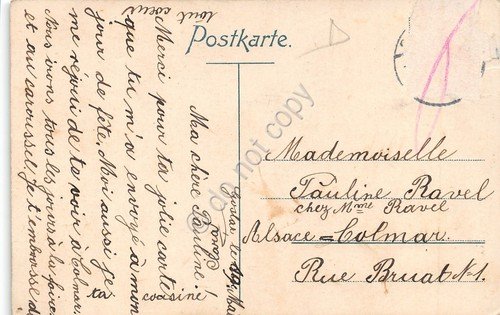 Postkarte.
Ma chère Pauline!
Merci pour ta jolie carte
que tu m'a envoyé à mon
jour de fête. Moi aussi je
me réjoui de te voir à Colmar.
Nous irons tous les jours à la foire
et au carousel. Je t'embrasse de
tout coeur
ta cousine
Mademoiselle
Pauline Ravel
chez Mme Ravel
Alsace=Colmar.
Rue Bruat No 1.
do not copy